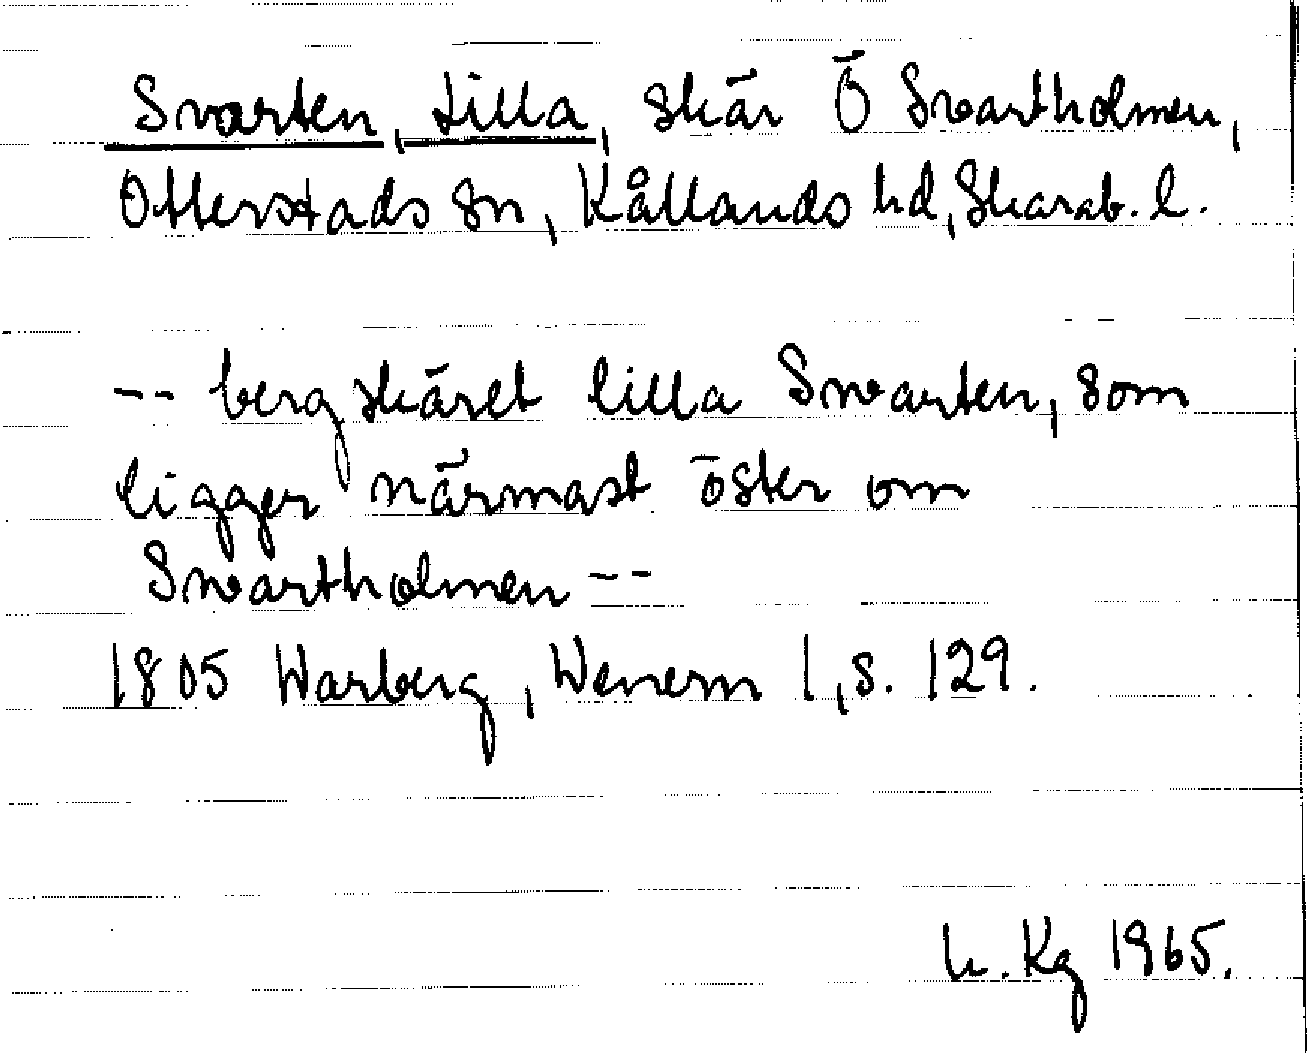 Svarten, Lilla, skär Ö Svartholmen,
Otterstads sn, Kållands hd, Skarab. l.
-- bergskäret lilla Swarten, som
ligger närmast öster om
Swartholmen --
1805 Warberg, Wenern 1, s. 129.
Kg 1965.